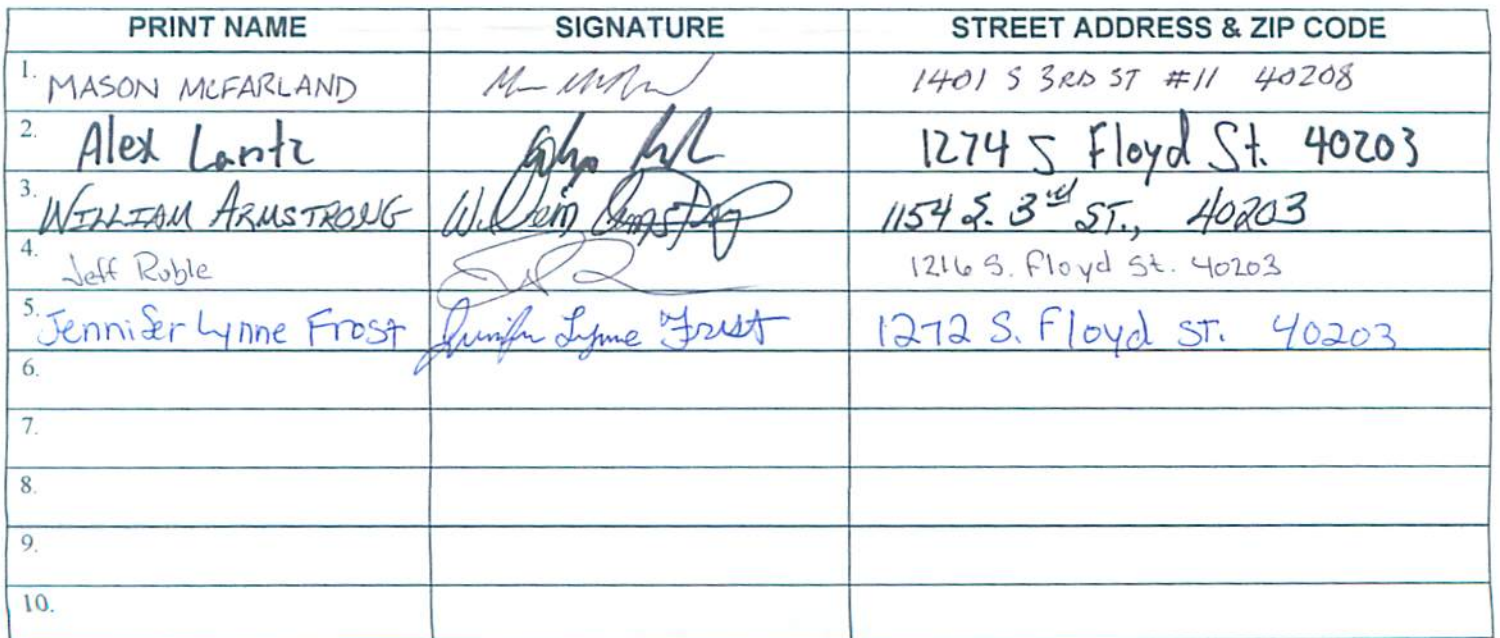 PRINT NAME SIGNATURE STREET ADDRESS & ZIP CODE
1. MASON MCFARLAND 1401 S 3RD ST #11 40208
2. Alex Lantz 1274 S Floyd St. 40203
3. WILLIAM ARMSTRONG William Armstrong 1154 S. 3rd ST., 40203
4. Jeff Ruble 1216 S. Floyd St. 40203
5. Jennifer Lynne Frost Jennifer Lynne Frost 1272 S. Floyd ST. 40203
6.
7.
8.
9.
10.